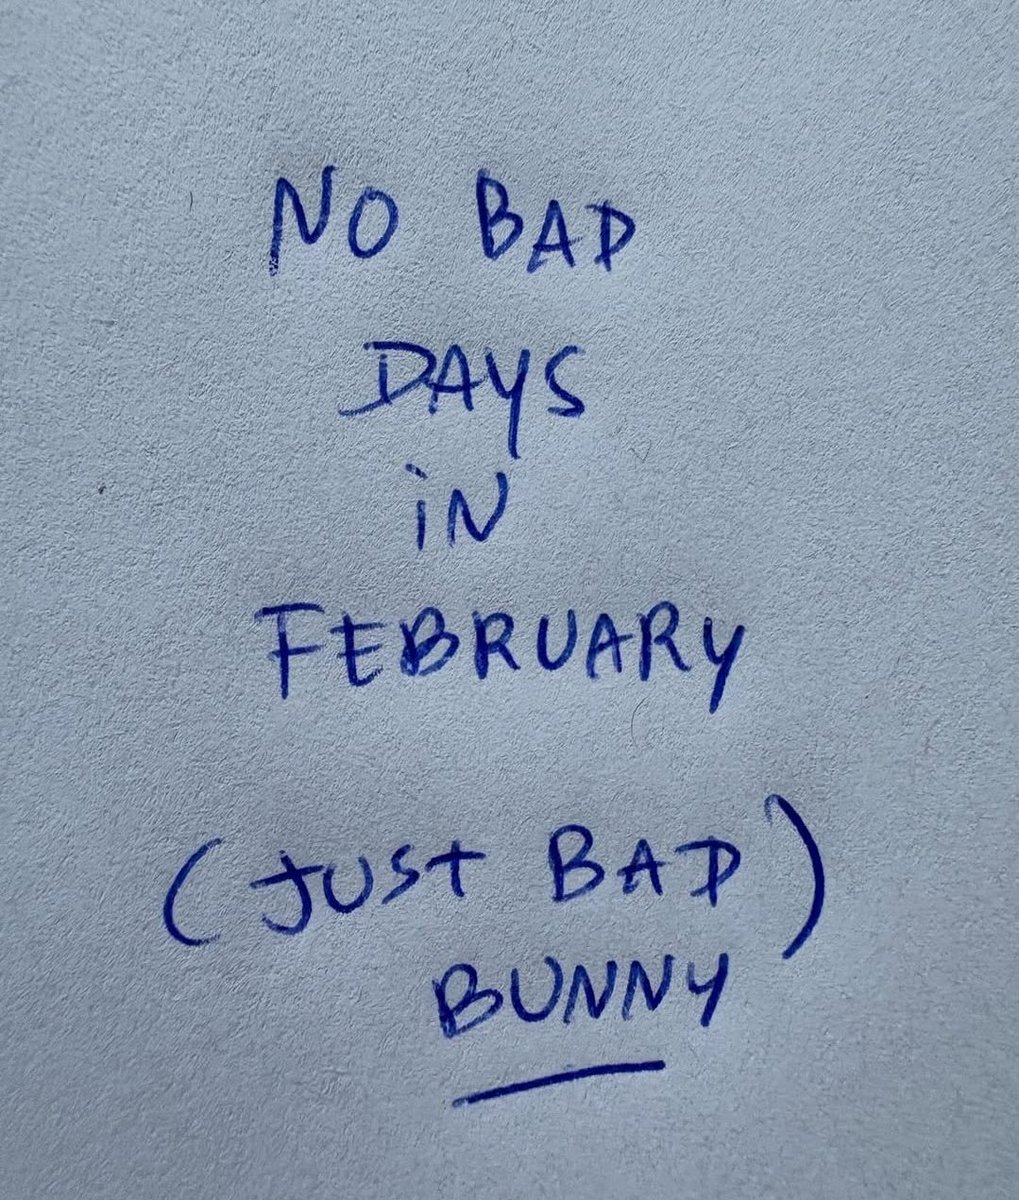 NO BAD
DAYS
iN
FEBRUARY
(JUST BAD)
BUNNY